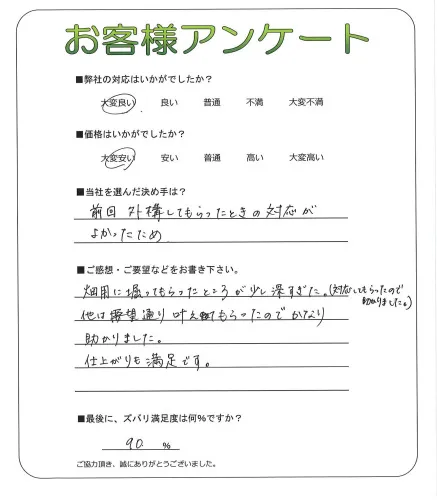 お客様アンケート
■弊社の対応はいかがでしたか？
大変良い 良い 普通 不満 大変不満
■価格はいかがでしたか？
大変安い 安い 普通 高い 大変高い
■当社を選んだ決め手は？
前回外構してもらったときの対応が
よかったため
■ご感想・ご要望などをお書き下さい。
畑用に掘ってもらったところが少し深すぎた。(対応してもらったので
助かりました。)
他は要望通り叶えてもらったのでかなり
助かりました。
仕上がりも満足です。
■最後に、ズバリ満足度は何％ですか？
90 %
ご協力頂き、誠にありがとうございました。